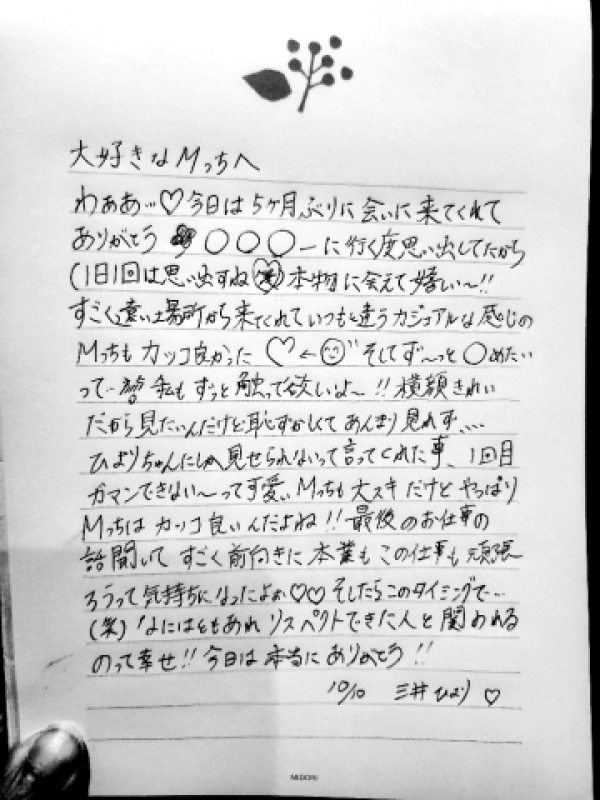 大好きなMっちへ
わぁぁ…♡今日は5ヶ月ぶりに会いに来てくれて
ありがとう ○○○ーに行く度思い出してたから
(1日1回は思い出すね)本物に会えて嬉しい〜!!
すごく遠い場所から来てくれていつもと違うカジュアルな感じの
Mっちもカッコ良かった ♡← そしてず〜っと○めたい
って… 私もずっと触って欲しいよ〜!! 横顔きれい
だから見たいんだけど恥ずかしくてあんまり見れず、…
ひよりちゃんにしか見せられないって言ってくれた事、1回目
ガマンできない〜って可愛いMっちも大スキだけどやっぱり
Mっちはカッコ良いんだよね!! 最後のお仕事の
話聞いてすごく前向きに本業もこの仕事も頑張
ろうって気持ちになったよぉ♡♡そしたらこのタイミングで…
(笑)なにはともあれリスペクトできた人と関われる
のって幸せ!! 今日は本当にありがとう!!
10/10 三井ひより ♡
MIDORI